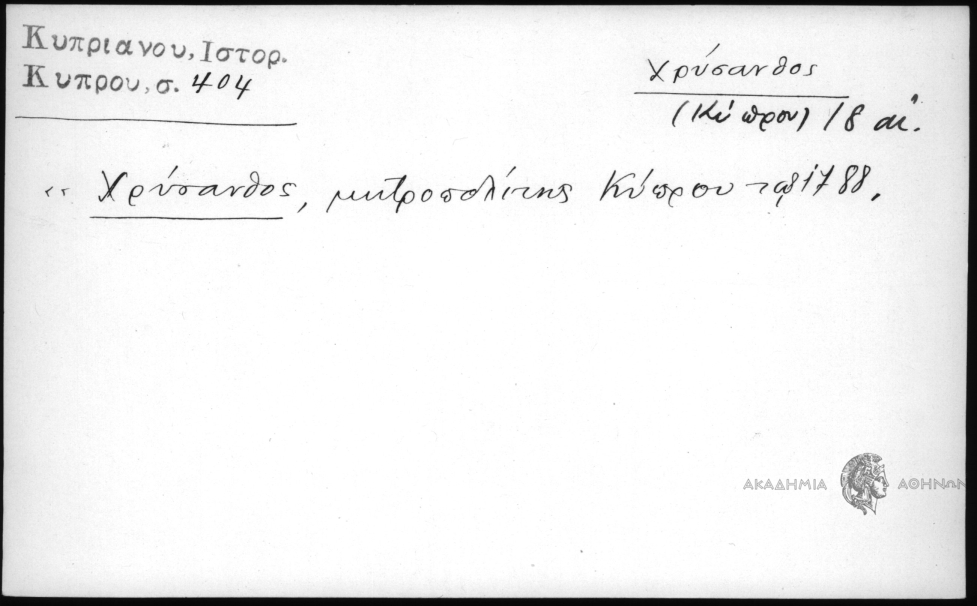 Κυπριανου, Ιστορ.
Κυπρου, σ. 404
Χρύσανθος
(Κύπρου) 18 αι.
“ Χρύσανθος, μητροπολίτης Κύπρου 1788.
ΑΚΑΔΗΜΙΑ ΑΘΗΝΩΝ